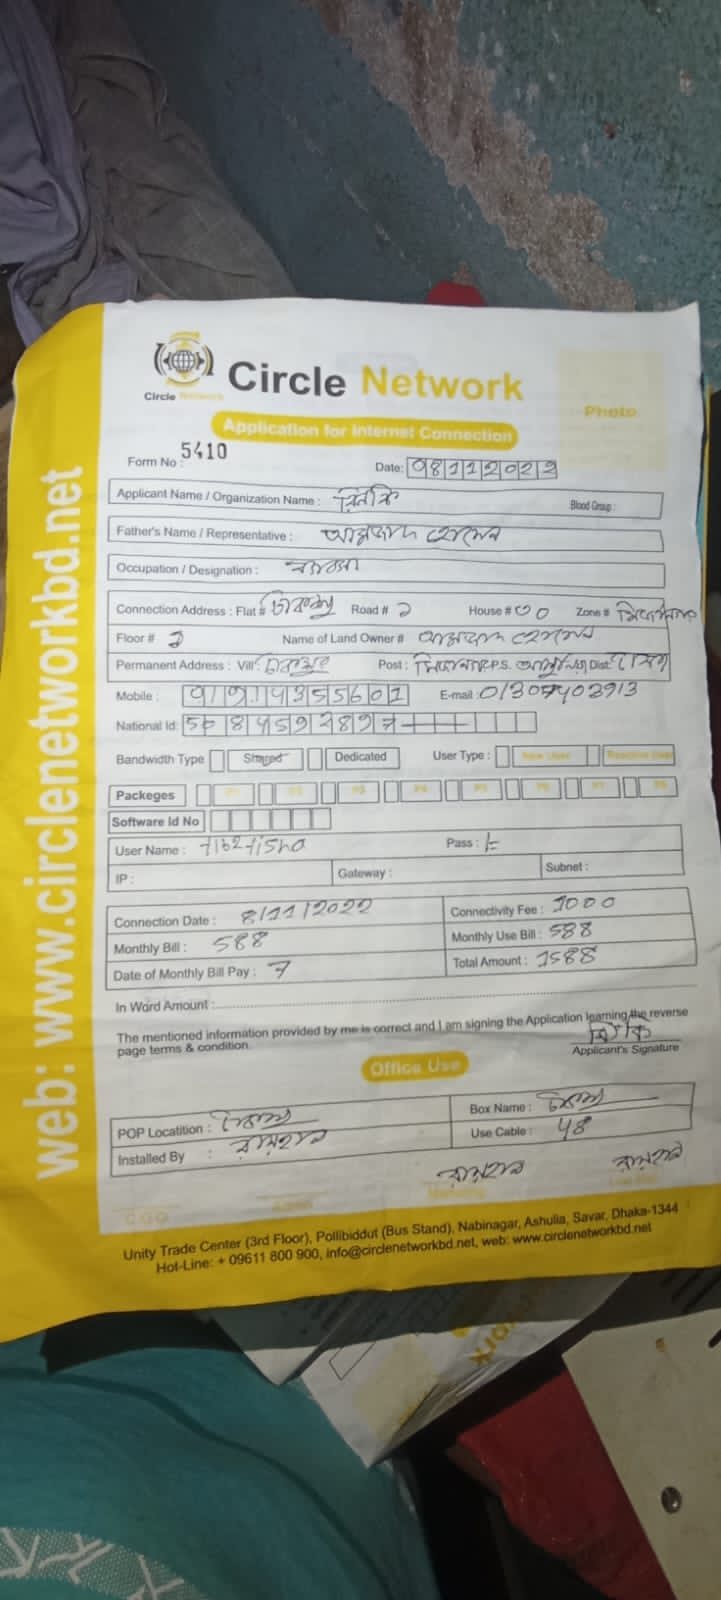 web: www.circlenetworkbd.net
Circle Network
Circle Network
Photo
Application for Internet Connection
Form No : 5410
Date: 08112022
Applicant Name / Organization Name : Blood Group :
Father's Name / Representative : আমজাদ হোসেন
Occupation / Designation : ব্যবসা
Connection Address : Flat # Road # House # Zone #
Floor # Name of Land Owner # আমজাদ হোসেন
Permanent Address : Vill: Post : P.S. Dist:
Mobile : E-mail 01307403913
National Id:
Bandwidth Type Shared Dedicated User Type : New User
Packeges P1 P2 P3 P4 P5 P6 P7 P8
Software Id No
User Name : Pass :
IP : Gateway : Subnet :
Connection Date : 8/11/2022 Connectivity Fee : 1000
Monthly Bill : 588 Monthly Use Bill : 588
Date of Monthly Bill Pay : 7 Total Amount : 1588
In Word Amount :
The mentioned information provided by me is correct and I am signing the Application learning the reverse
page terms & condition.
Applicant's Signature
Office Use
POP Locatition : Box Name :
Installed By : Use Cable : 48
Unity Trade Center (3rd Floor), Pollibiddut (Bus Stand), Nabinagar, Ashulia, Savar, Dhaka-1344
Hot-Line: + 09611 800 900, info@circlenetworkbd.net, web: www.circlenetworkbd.net